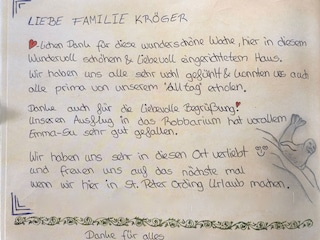 LIEBE FAMILIE KRÖGER
lichen Dank für diese wunderschöne Woche, hier in diesem
Wundervoll schönem & Liebevoll eingerichtetem Haus.
Wir haben uns alle sehr wohl gefühlt & konnten uns auch
alle prima von unserem "Alltag" erholen.
Danke auch für die liebevolle Begrüßung!
Unseren Ausflug in das Robbarium hat vorallem
Emma-Su sehr gut gefallen.
Wir haben uns sehr in diesen Ort verliebt
und freuen uns auf das nächste mal
wenn wir hier in St. Peter Ording Urlaub machen.
Danke für alles